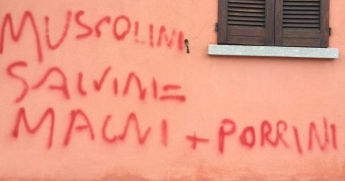 MUSSOLINI
SALVINI =
MAGNI + PORRINI